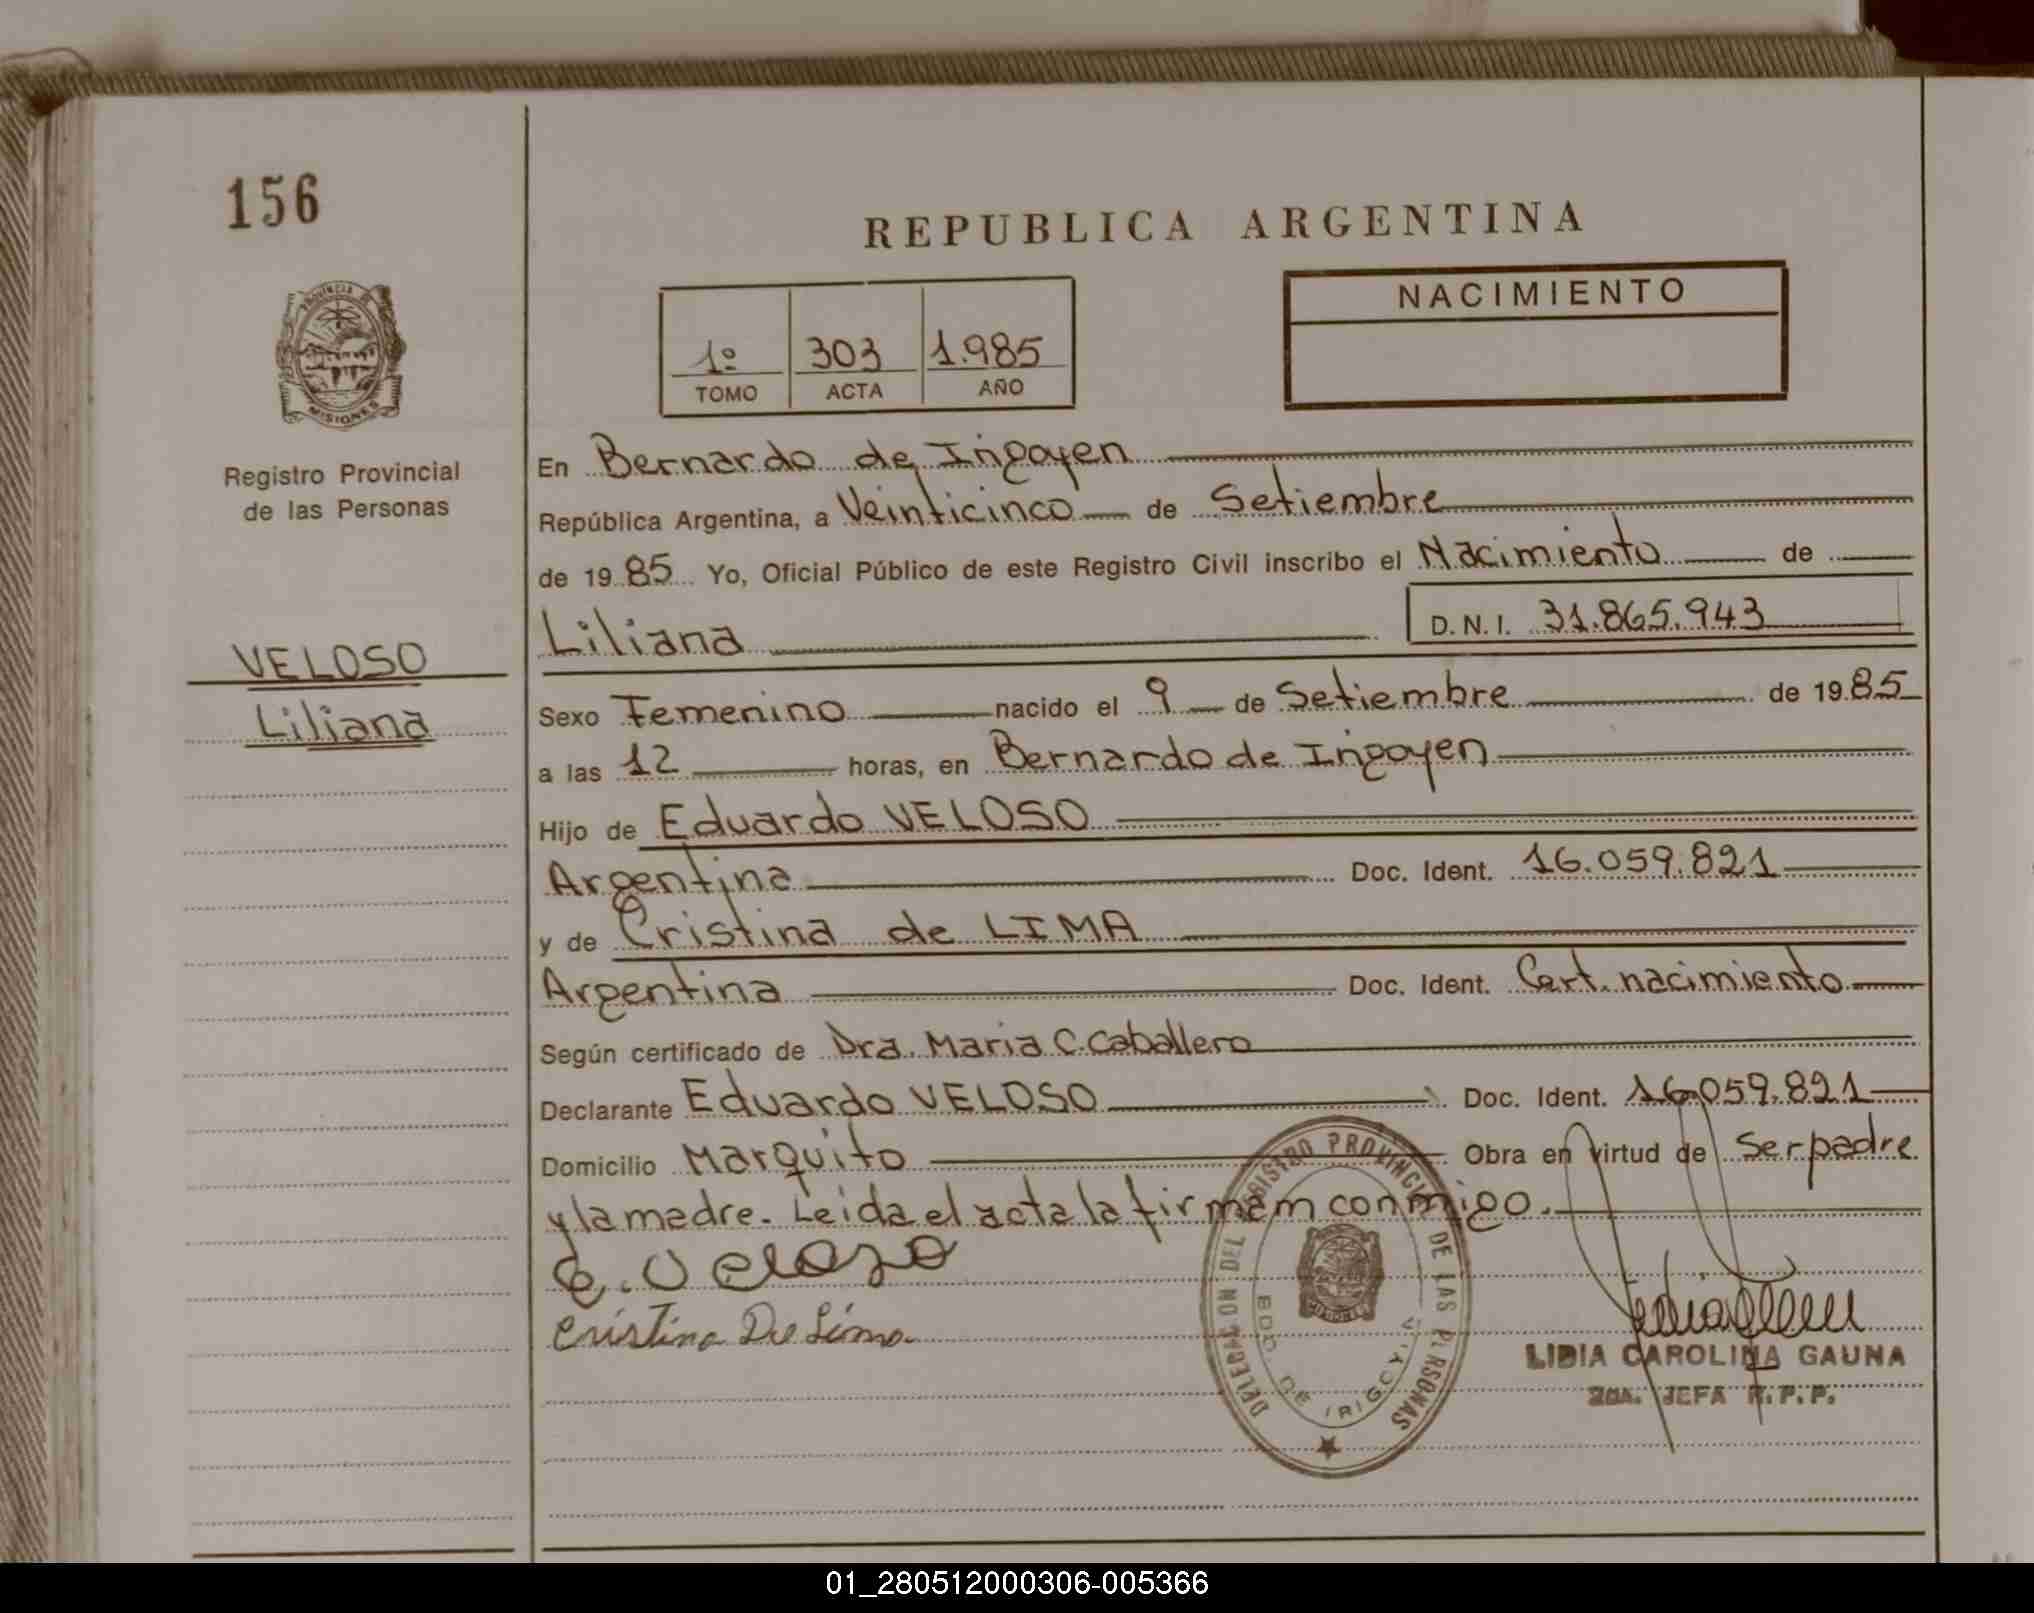 156
REPUBLICA ARGENTINA
PROVINCIA DE
MISIONES
1º 303 1.985
TOMO ACTA AÑO
NACIMIENTO
Registro Provincial
de las Personas
VELOSO
Liliana
En Bernardo de Irigoyen
República Argentina, a Veinticinco de Setiembre
de 1985 Yo, Oficial Público de este Registro Civil inscribo el Nacimiento de
Liliana D.N.I. 31.865.943
Sexo Femenino nacido el 9 de Setiembre de 1985
a las 12 horas, en Bernardo de Irigoyen
Hijo de Eduardo VELOSO
Argentina Doc. Ident. 16.059.821
y de Cristina de LIMA
Argentina Doc. Ident. Cert. nacimiento
Según certificado de Dra. Maria C. Caballero
Declarante Eduardo VELOSO Doc. Ident. 16.059.821
Domicilio Marquito Obra en virtud de ser padre
y la madre. Leida el acta la firmam conmigo.
e. Veloso
Cristina De Lima
DELEGACION DEL REGISTRO PROVINCIAL DE LAS PERSONAS
BDO DE IRIGOYEN
LIDIA CAROLINA GAUNA
2DA. JEFA R.P.P.
01_280512000306-005366